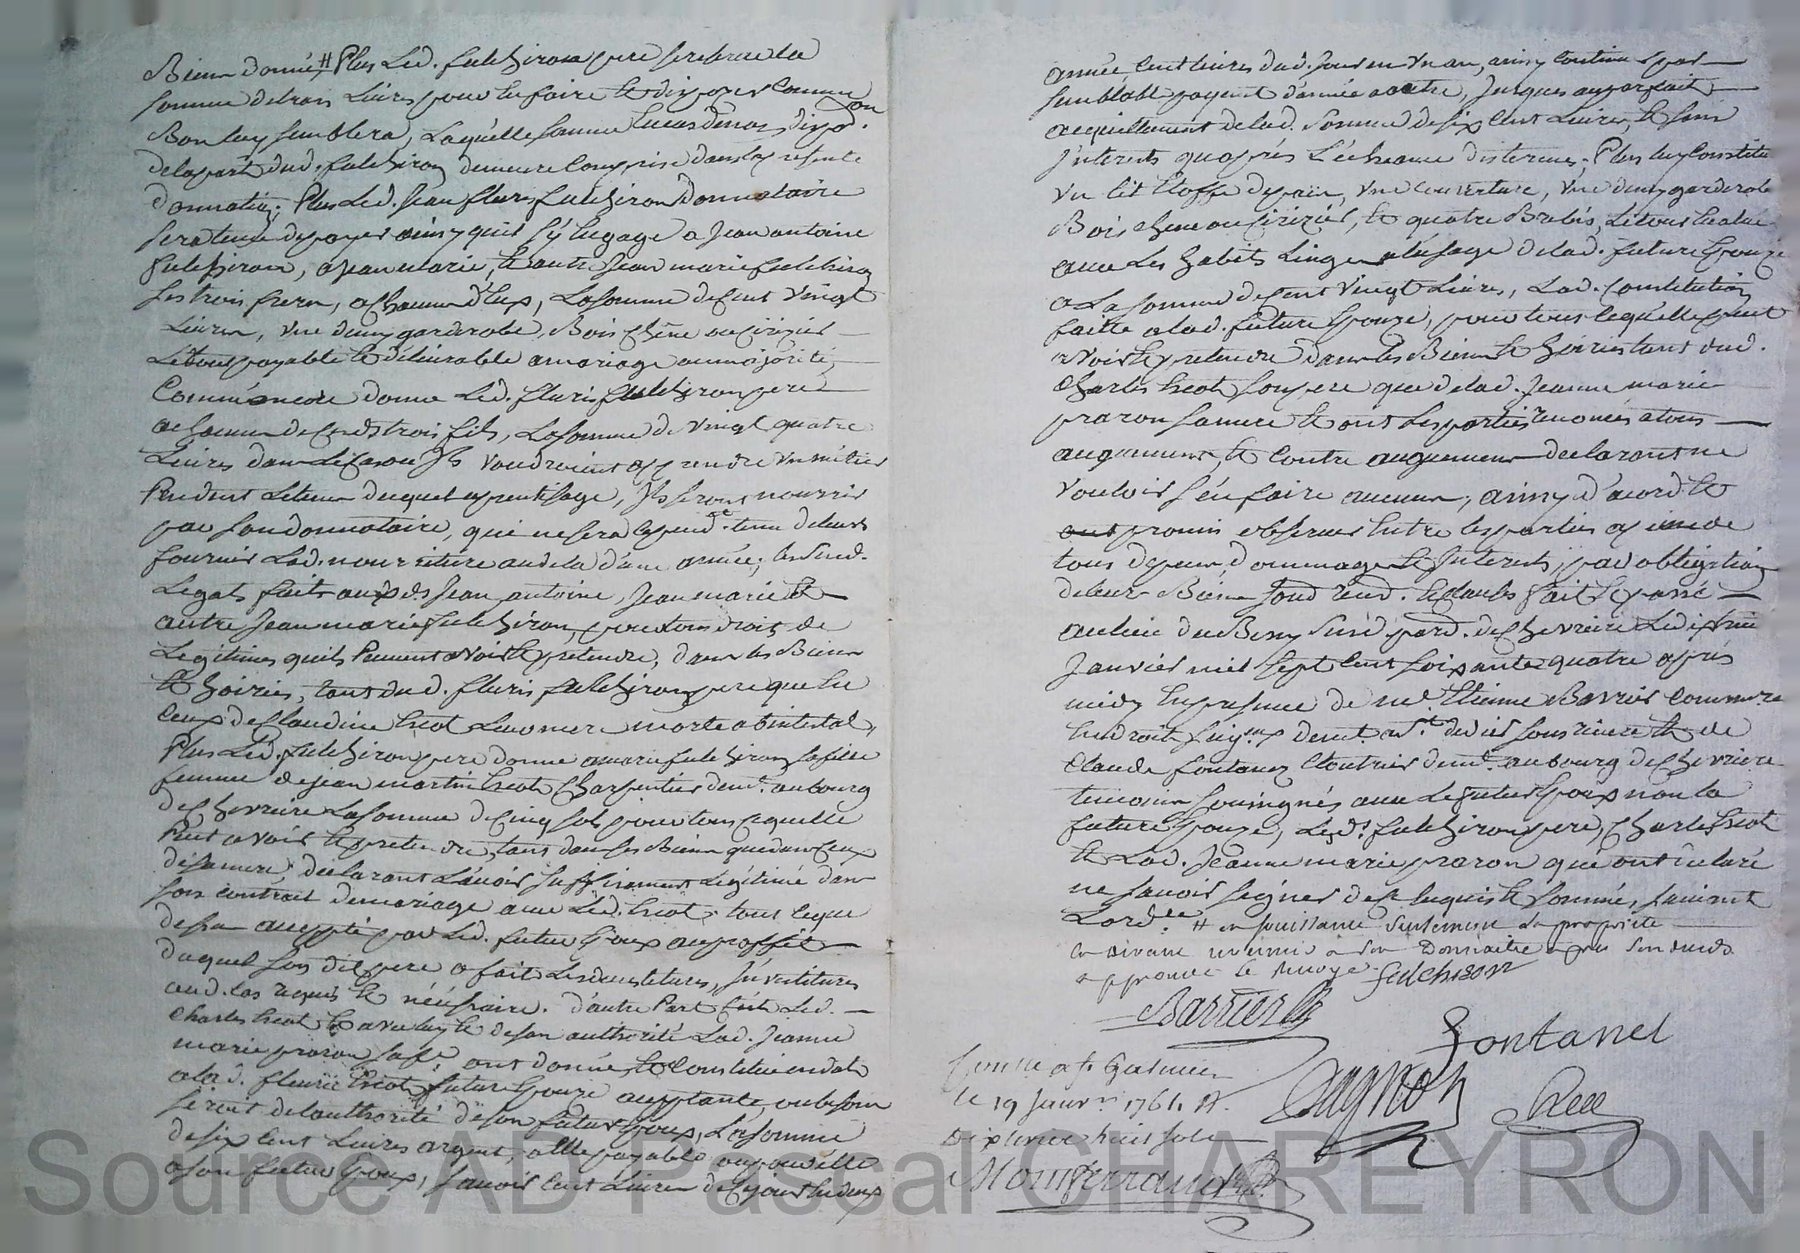 Biens donnés, # Plus led. fulchiron pere se reserve la
somme de trois livres pour en faire et disposer comme
Bon luy semblera, laquelle somme en cas de non dispo.on
de la part dud. fulchiron demeure comprise dans la presente
donnation; Plus led. Jean fleuris fulchiron donnataire
sera tenu de payer ainsy qu'il s'y engage a Jean antoine
fulchiron, a Jean marie, et autre Jean marie fulchiron
ses trois freres, a chacun d'eux, la somme de cent vingt
Livres, une demy garderobe, Bois chêne ou cirizier
le tout payable et delivrable a mariage ou majorité,
Comme encore donne led. fleuris fulchiron pere
a chacun de sesds trois fils, la somme de vingt quatre
Livres dans le cas ou ils voudroient apprendre un métier
Pendant le tems duquel aprentisage, ils seront nourris
par son donnataire, qui ne sera cepend.t tenu de leurs
fournir lad. nourriture au dela d'une année; lesquels
Legats faits auxds Jean antoine, Jean marie et
autre Jean marie fulchiron, pour tous droits de
Legitimes qu'ils Peuvent avoir et pretendre, dans les Biens
et hoiries, tant dud. fleuris fulchiron pere que en
ceux de Claudine Escot leur mere morte abintestat,
Plus led. fulchiron pere donne a marie fulchiron sa fille
femme de Jean martin Escot Charpentier demt. au bourg
de Chevriere la somme de cinq sols pour tous ce quelle
Peut avoir et pretendre, tans dans ses Biens que dans ceux
de sa mere; declarant l'avoir suffisament Legitimée dans
son contrat de mariage avec led. Escot; tous ce que
dessus accepté par led. futur Epoux au proffit
duquel sond. pere a fait les devetitures, Investitures
aud. cas requis et nécessaire. d'autre Part led.
Charles Escot et avec luy et de son authorité lad. Jeanne
marie praron sa fe. ont donné et Constitué en dot
a lad. fleurie Escot future Epouze acceptante, au besoin
seront de l'authorité de son futur Epoux, la somme
de six cent Livres argent, a elle payable ou pour elle
a son futur Epoux, savoir cent Livres de ce jour en deux
année, cent livres dud. Jour en un an, ainsy continuer par
semblable payent d'année a autre, jusques au parfait
acquittement de lad. somme de six cent Livres, et sans
Jnterests qu'après l'écheance des termes; Plus luy constitue
un lit Etoffe de païs, une couverture, une demy garderobe
Bois chene ou cirizier, et quatre Brebis, le tous Evalué
avec les habits Linge a l'usage de lad. future Epouze
a La somme de cent vingt Livres, Lad. Constitution
faitte a lad. future Epouze, pour tous ce qu'elle peut
avoir et pretendre dans les Biens et hoiries tant dud.
Charles Escot son pere que de lad. Jeanne marie
praron sa mere et ont les parties renoncés a tous
augment, et contre augment declarant ne
vouloir s'en faire aucun; ainsy d'acord et
promis observer Entre les parties a peine de
tous depens dommages et Interests, par obligation
de leurs Biens soud. rend. et clauses fait et passé
au lieu du Beny susd. par. de Chevriere Le dixme
Janvier mil sept cent soixante quatre après
midy En presence de me. Etienne Barrier Commre.
En droits seig.aux demt. au de et de
Claude fontanez Cloutrier demt. au bourg de Chevriere
temoins soussignés avec le futur Epoux non la
future Epouze, lesd. fulchiron pere, Charles Escot
et Lad. Jeanne marie praron qui ont declaré
ne savoir signer de ce Enquis et sommé, suivant
Lord.ce # en jouissance seulement la proprieté
en avenant reünir a son Donnataire apres son decès
approuvé le renvoye. fulchiron
Barrier
Fontanel
Gagnon
Controllé a St Galmier
le 19 Janvier 1764. R.
dix livres huit sols
Montferrand
Source AD Pascal CHAREYRON